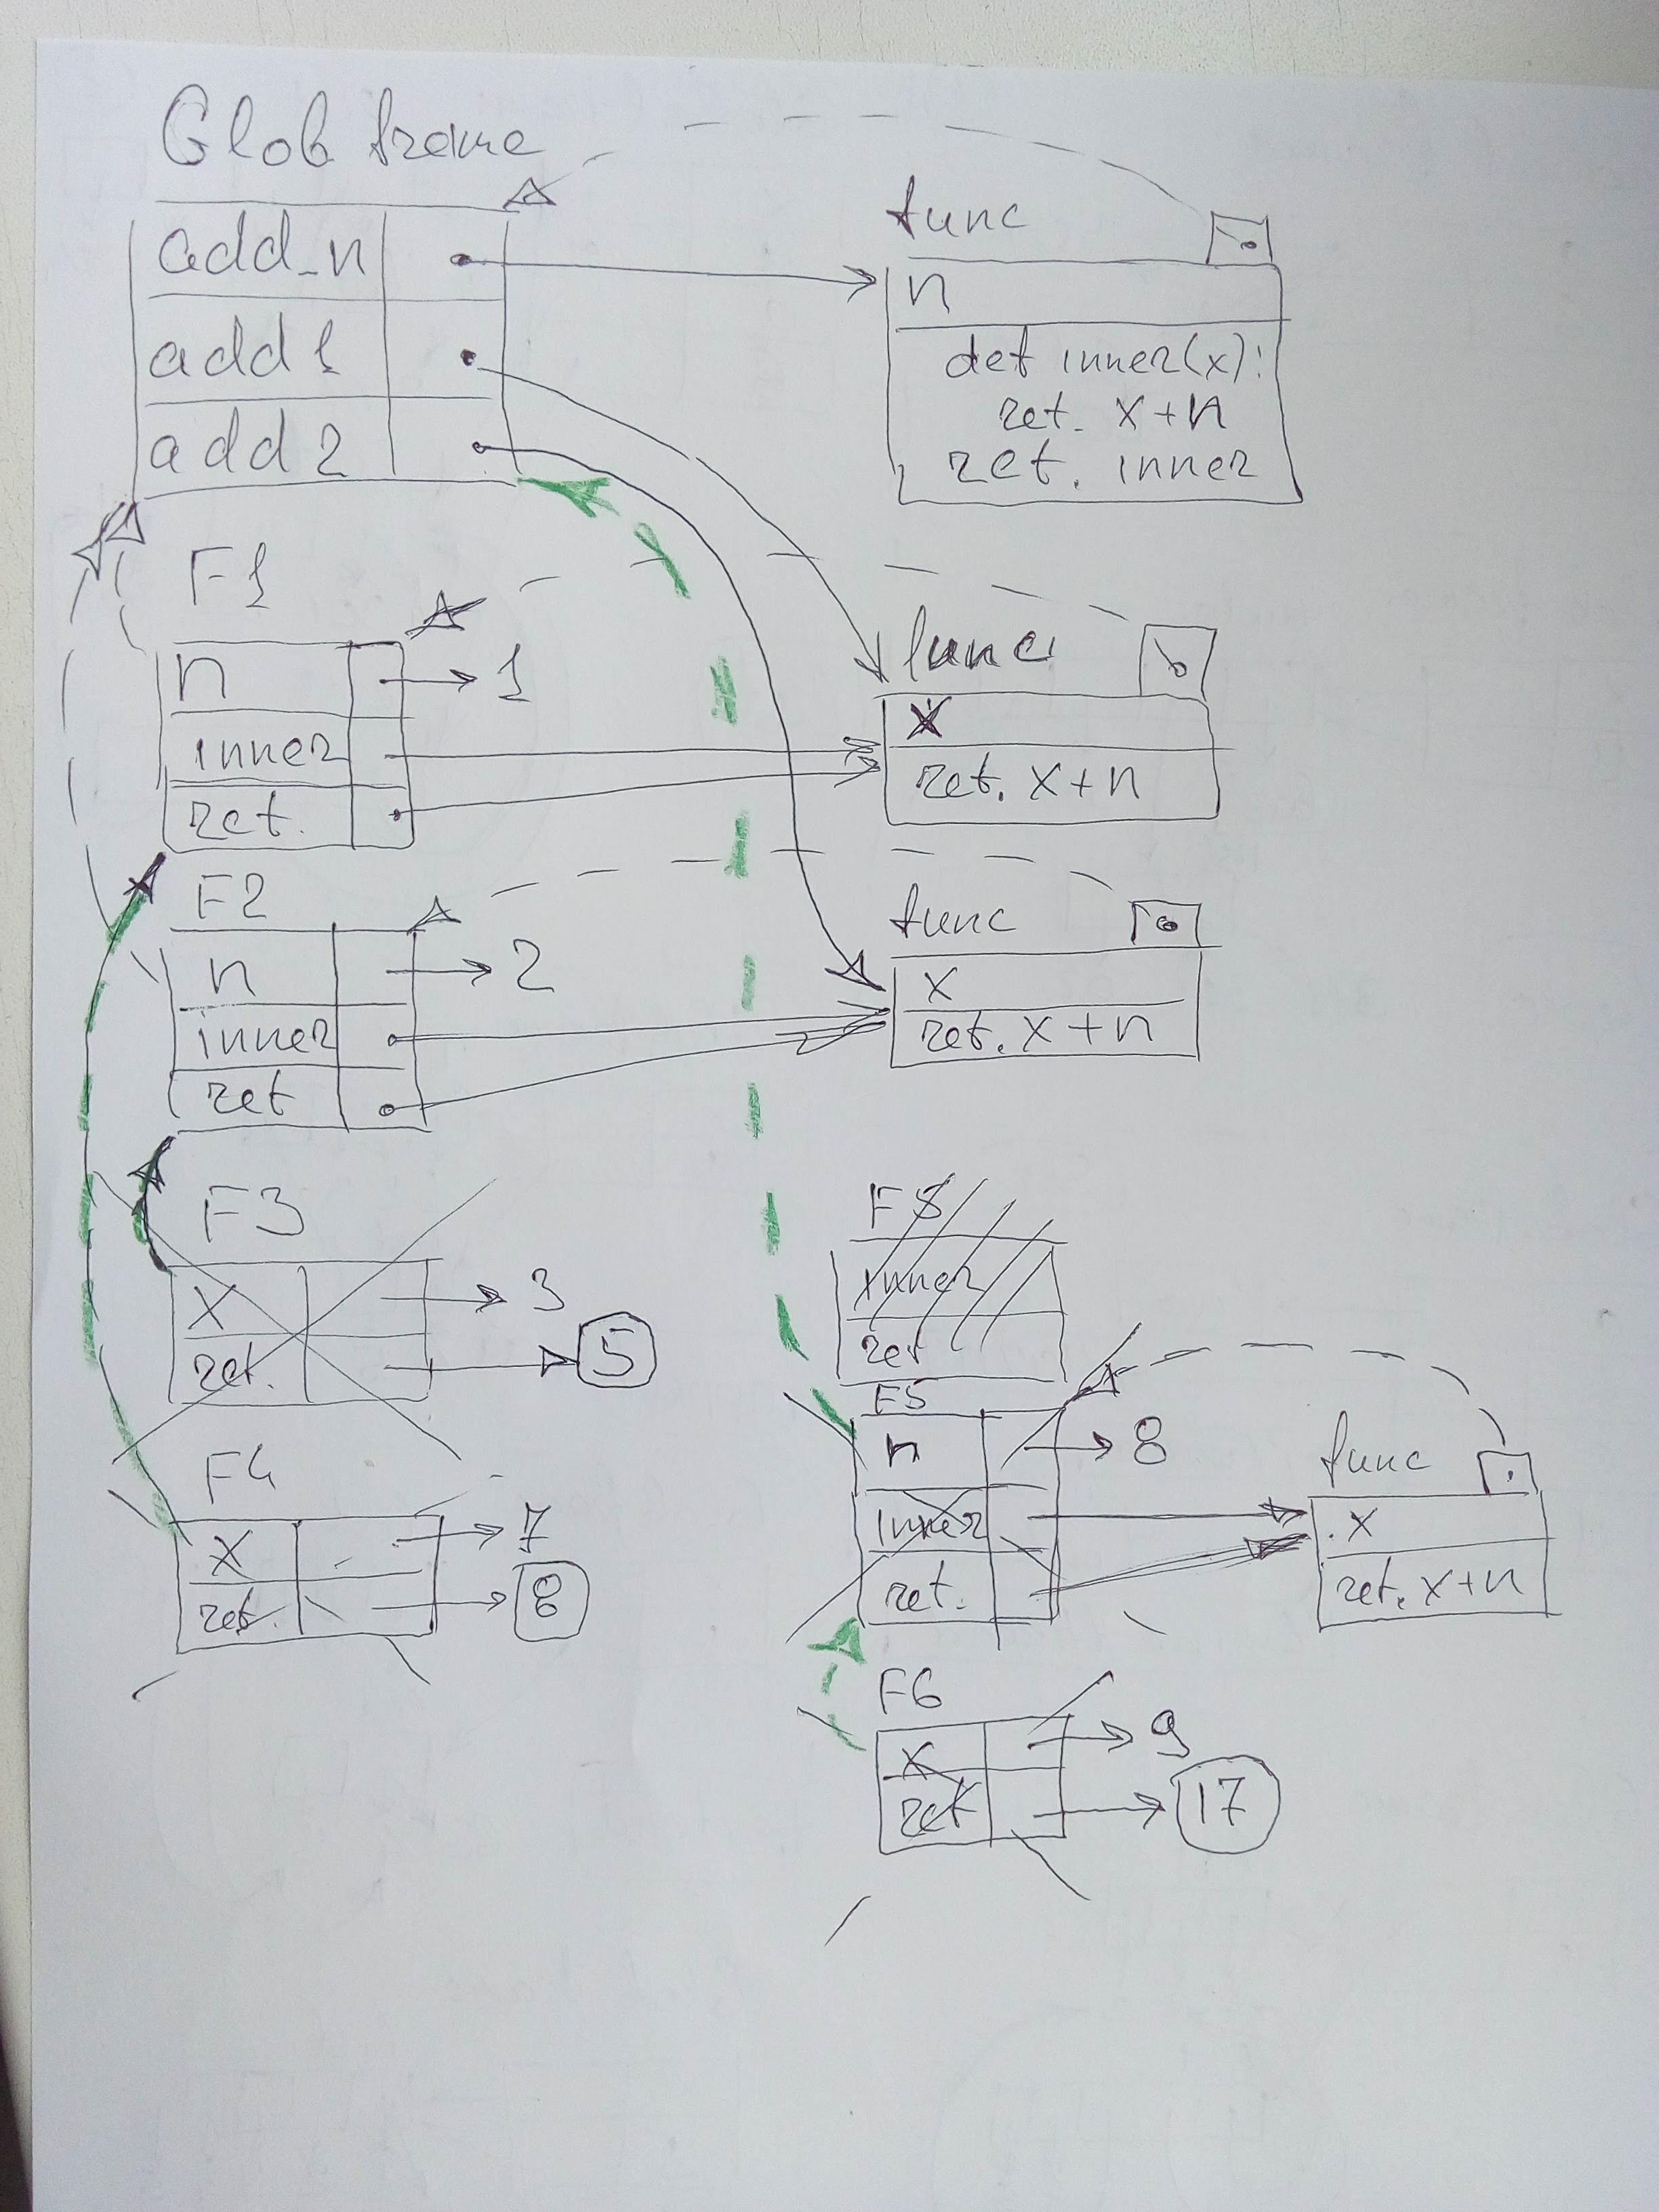 Glob frame
add_n
add1
add2
func
n
def inner(x):
ret. x+n
ret. inner
F1
n 1
inner
ret.
func
x
ret. x+n
F2
n 2
inner
ret
func
x
ret. x+n
F3
x 3
ret. 5
F4
x 7
ret. 8
F5
inner
ret
F5
n 8
inner
ret.
func
.x
ret. x+n
F6
x 9
ret 17